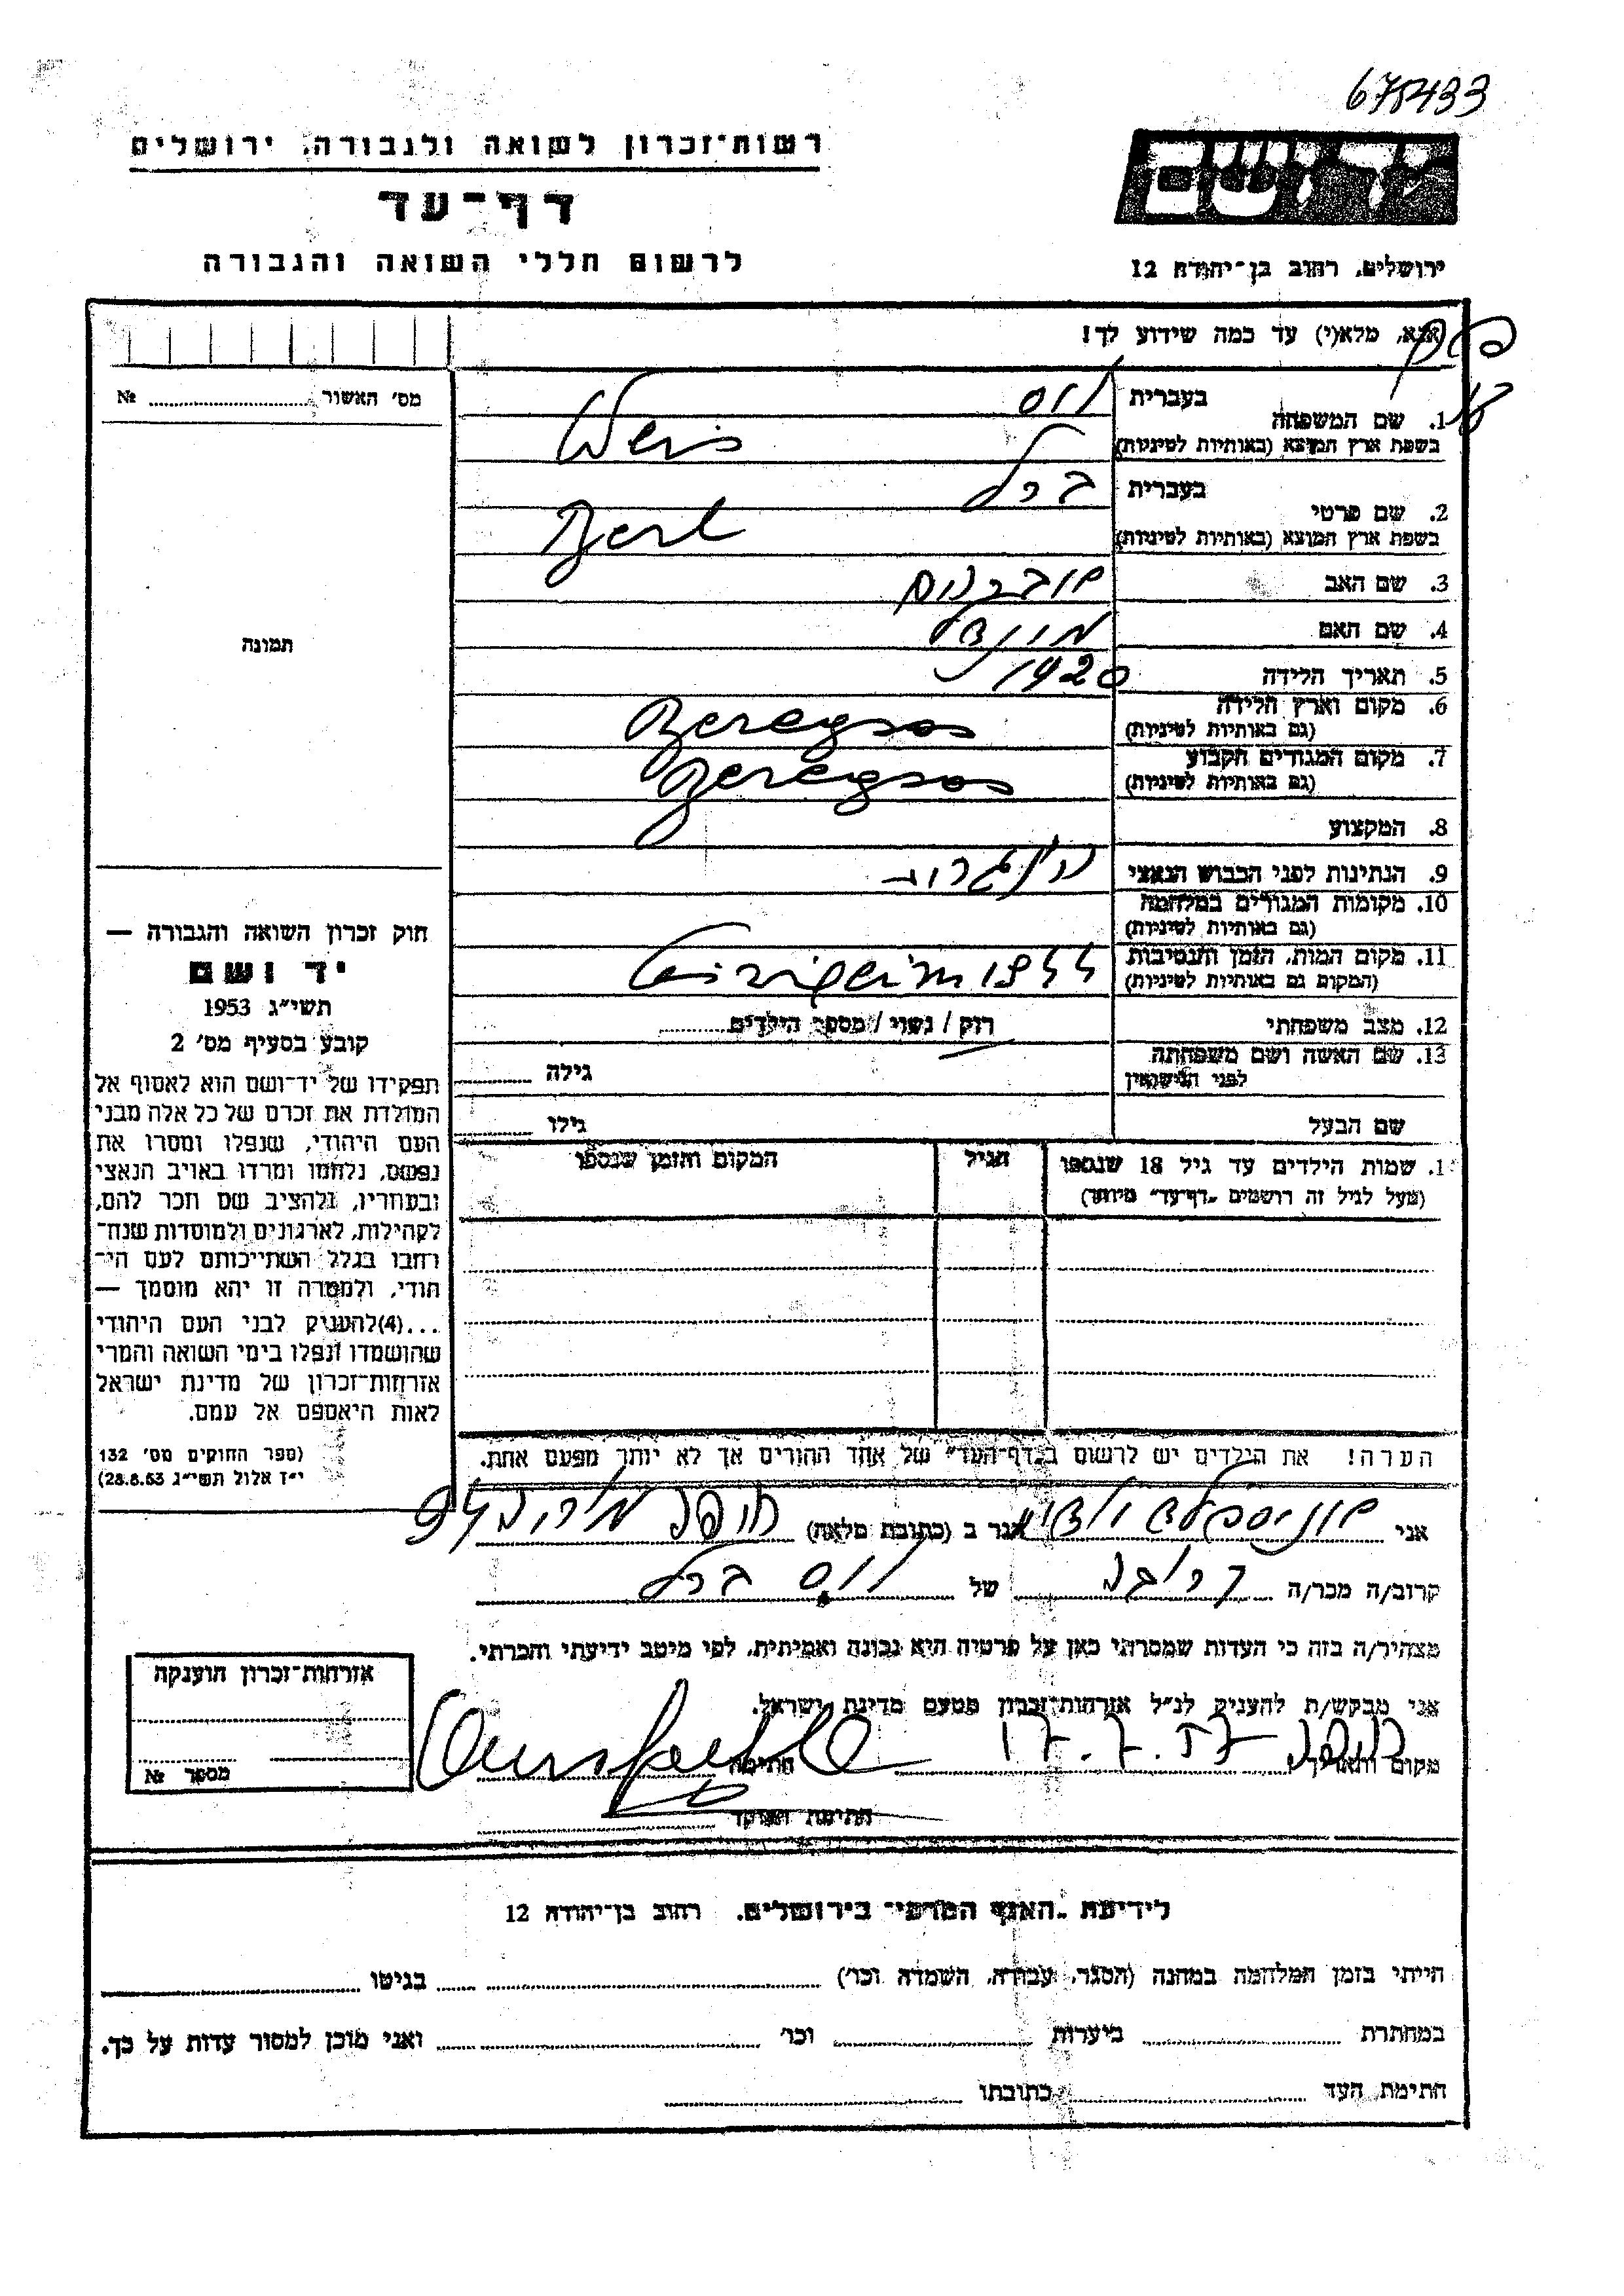 675433
רשות־זכרון לשואה ולגבורה, ירושלים
יד ושם
דף־עד
לרשום חללי השואה והגבורה
ירושלים, רחוב בן־יהודה 12
אנא, מלא(י) עד כמה שידוע לך!
מס׳ האשור № 
תמונה
חוק זכרון השואה והגבורה —
יד ושם
תשי״ג 1953
קובע בסעיף מס׳ 2
תפקידו של יד־ושם הוא לאסוף אל
המולדת את זכרם של כל אלה מבני
העם היהודי, שנפלו ומסרו את
נפשם, נלחמו ומרדו באויב הנאצי
ובעוזריו, ולהציב שם וזכר להם,
לקהילות, לארגונים ולמוסדות שנח־
רחבו בגלל השתייכותם לעם הי־
הודי, ולמטרה זו יהא מוסמך —
...(4)להעניק לבני העם היהודי
שהושמדו ונפלו בימי השואה והמרי
אזרחות־זכרון של מדינת ישראל
לאות היאספם אל עמם.
(ספר החוקים מס׳ 132
י״ז אלול תשי״ג 28.8.53)
1. שם המשפחה בעברית ווס
בשפת ארץ המוצא (באותיות לטיניות) Weis
2. שם פרטי בעברית ברל
בשפת ארץ המוצא (באותיות לטיניות) Berl
3. שם האב
4. שם האם
5. תאריך הלידה 1920
6. מקום וארץ הלידה Beregsas
(גם באותיות לטיניות)
7. מקום המגורים הקבוע Beregsas
(גם באותיות לטיניות)
8. המקצוע
9. הנתינות לפני הכבוש הנאצי
10. מקומות המגורים במלחמה
(גם באותיות לטיניות)
11. מקום המות, הזמן והנסיבות 1944
(המקום גם באותיות לטיניות)
12. מצב משפחתי רוק / נשוי / מספר הילדים
13. שם האשה ושם משפחתה
לפני הנישואין גילה
שם הבעל גילו
1. שמות הילדים עד גיל 18 שנספו הגיל המקום והזמן שנספו
(מעל לגיל זה רושמים „דף־עד״ מיוחד)
הערה! את הילדים יש לרשום ב„דף־העד״ של אחד ההורים אך לא יותר מפעם אחת.
אני הגר ב (כתובת מלאה) חיפה
קרוב/ה מכר/ה קרובה של ווס ברל
מצהיר/ה בזה כי העדות שמסרתי כאן על פרטיה היא נכונה ואמיתית, לפי מיטב ידיעתי והכרתי.
אני מבקש/ת להעניק לנ״ל אזרחות־זכרון מטעם מדינת ישראל.
מקום ותאריך חיפה 17.7.57 חתימה
חתימת הפוקד
אזרחות־זכרון הוענקה
מספר №
לידיעת „האגף המדעי״ בירושלים, רחוב בן־יהודה 12
הייתי בזמן המלחמה במחנה (הסגר, עבודה, השמדה וכו׳) בגיטו
במחתרת ביערות וכו׳ ואני מוכן למסור עדות על כך.
חתימת העד כתובתו